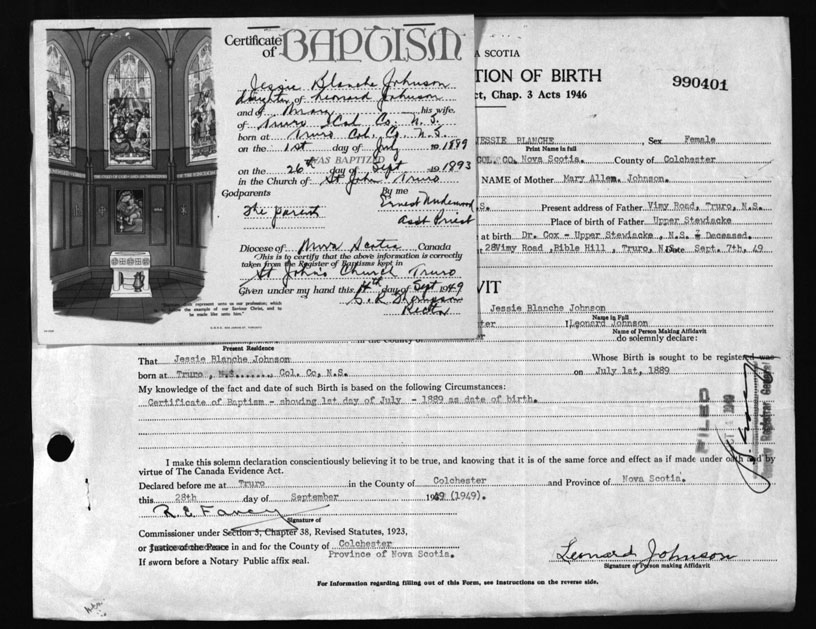 Certificate of BAPTISM
Jessie Blanche Johnson
daughter of Leonard Johnson
and of Mary his wife.
of Truro Col. Co. N.S.
born at Truro Col. Co. N.S.
on the 1st day of July 1889
WAS BAPTIZED
on the 26th day of Sept 1893
in the Church of St John Truro
Godparents By me
The parent Ernest Underwood
Asst Priest
Diocese of Nova Scotia, Canada
This is to certify that the above information is correctly
taken from the Register of Baptisms kept in
St John's Church Truro
Given under my hand this day of Sept 1949
Rector
represent unto us our profession; which
the example of our Saviour Christ, and to
be made like unto him."
A SCOTIA
TION OF BIRTH
990401
ct, Chap. 3 Acts 1946
JESSIE BLANCHE, Sex Female
Print Name in full
COL. CO. Nova Scotia. County of Colchester
NAME of Mother Mary Allen. Johnson.
S. Present address of Father Vimy Road, Truro, N.S.
Place of birth of Father Upper Stewiacke
at birth Dr. Cox - Upper Stewiacke, N.S. - Deceased.
at 28 Vimy Road, Bible Hill, Truro, N.S. Date Sept. 7th, 49
VIT
Jessie Blanche Johnson
Name in Full
ter I Leonard Johnson
Name of Person Making Affidavit
in the County of do solemnly declare:
Present Residence
That Jessie Blanche Johnson Whose Birth is sought to be registered was
born at Truro, N.S......, Col. Co, N.S. on July 1st, 1889
My knowledge of the fact and date of such Birth is based on the following Circumstances:
Certificate of Baptism - showing 1st day of July - 1889 as date of birth.
FILED
1949
Registrar General
I make this solemn declaration conscientiously believing it to be true, and knowing that it is of the same force and effect as if made under oath and by
virtue of The Canada Evidence Act.
Declared before me at Truro in the County of Colchester and Province of Nova Scotia.
this 28th day of September 1949 (1949).
R.E. Fancy
Signature of
Commissioner under Section 3, Chapter 38, Revised Statutes, 1923,
or Justice of the Peace in and for the County of Colchester
Province of Nova Scotia.
If sworn before a Notary Public affix seal.
Leonard Johnson
Signature of Person making Affidavit
For Information regarding filling out of this Form, see Instructions on the reverse side.